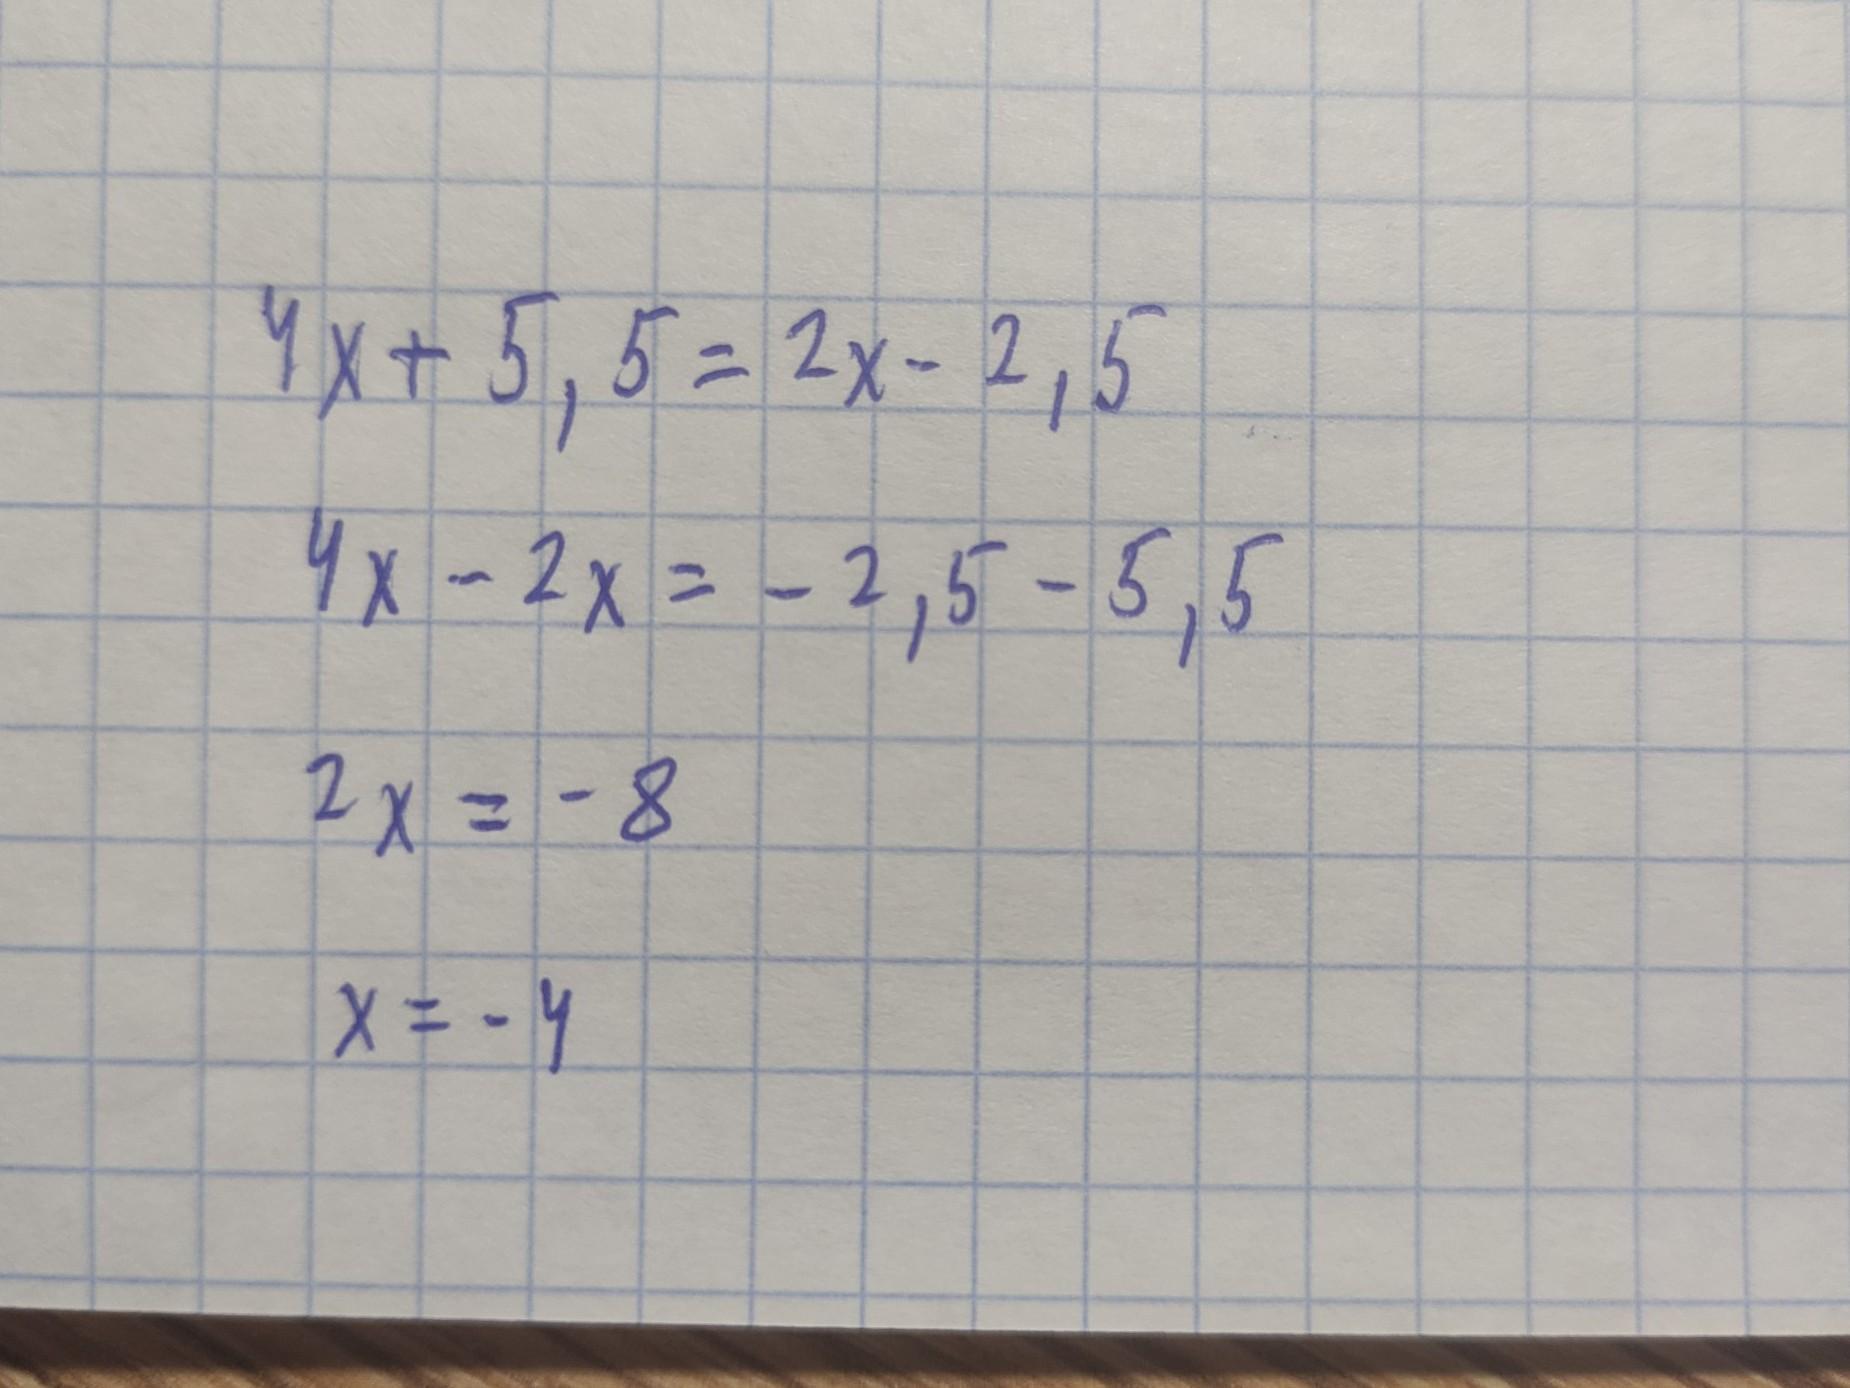 4x + 5,5 = 2x - 2,5
4x - 2x = - 2,5 - 5,5
2x = - 8
x = - 4